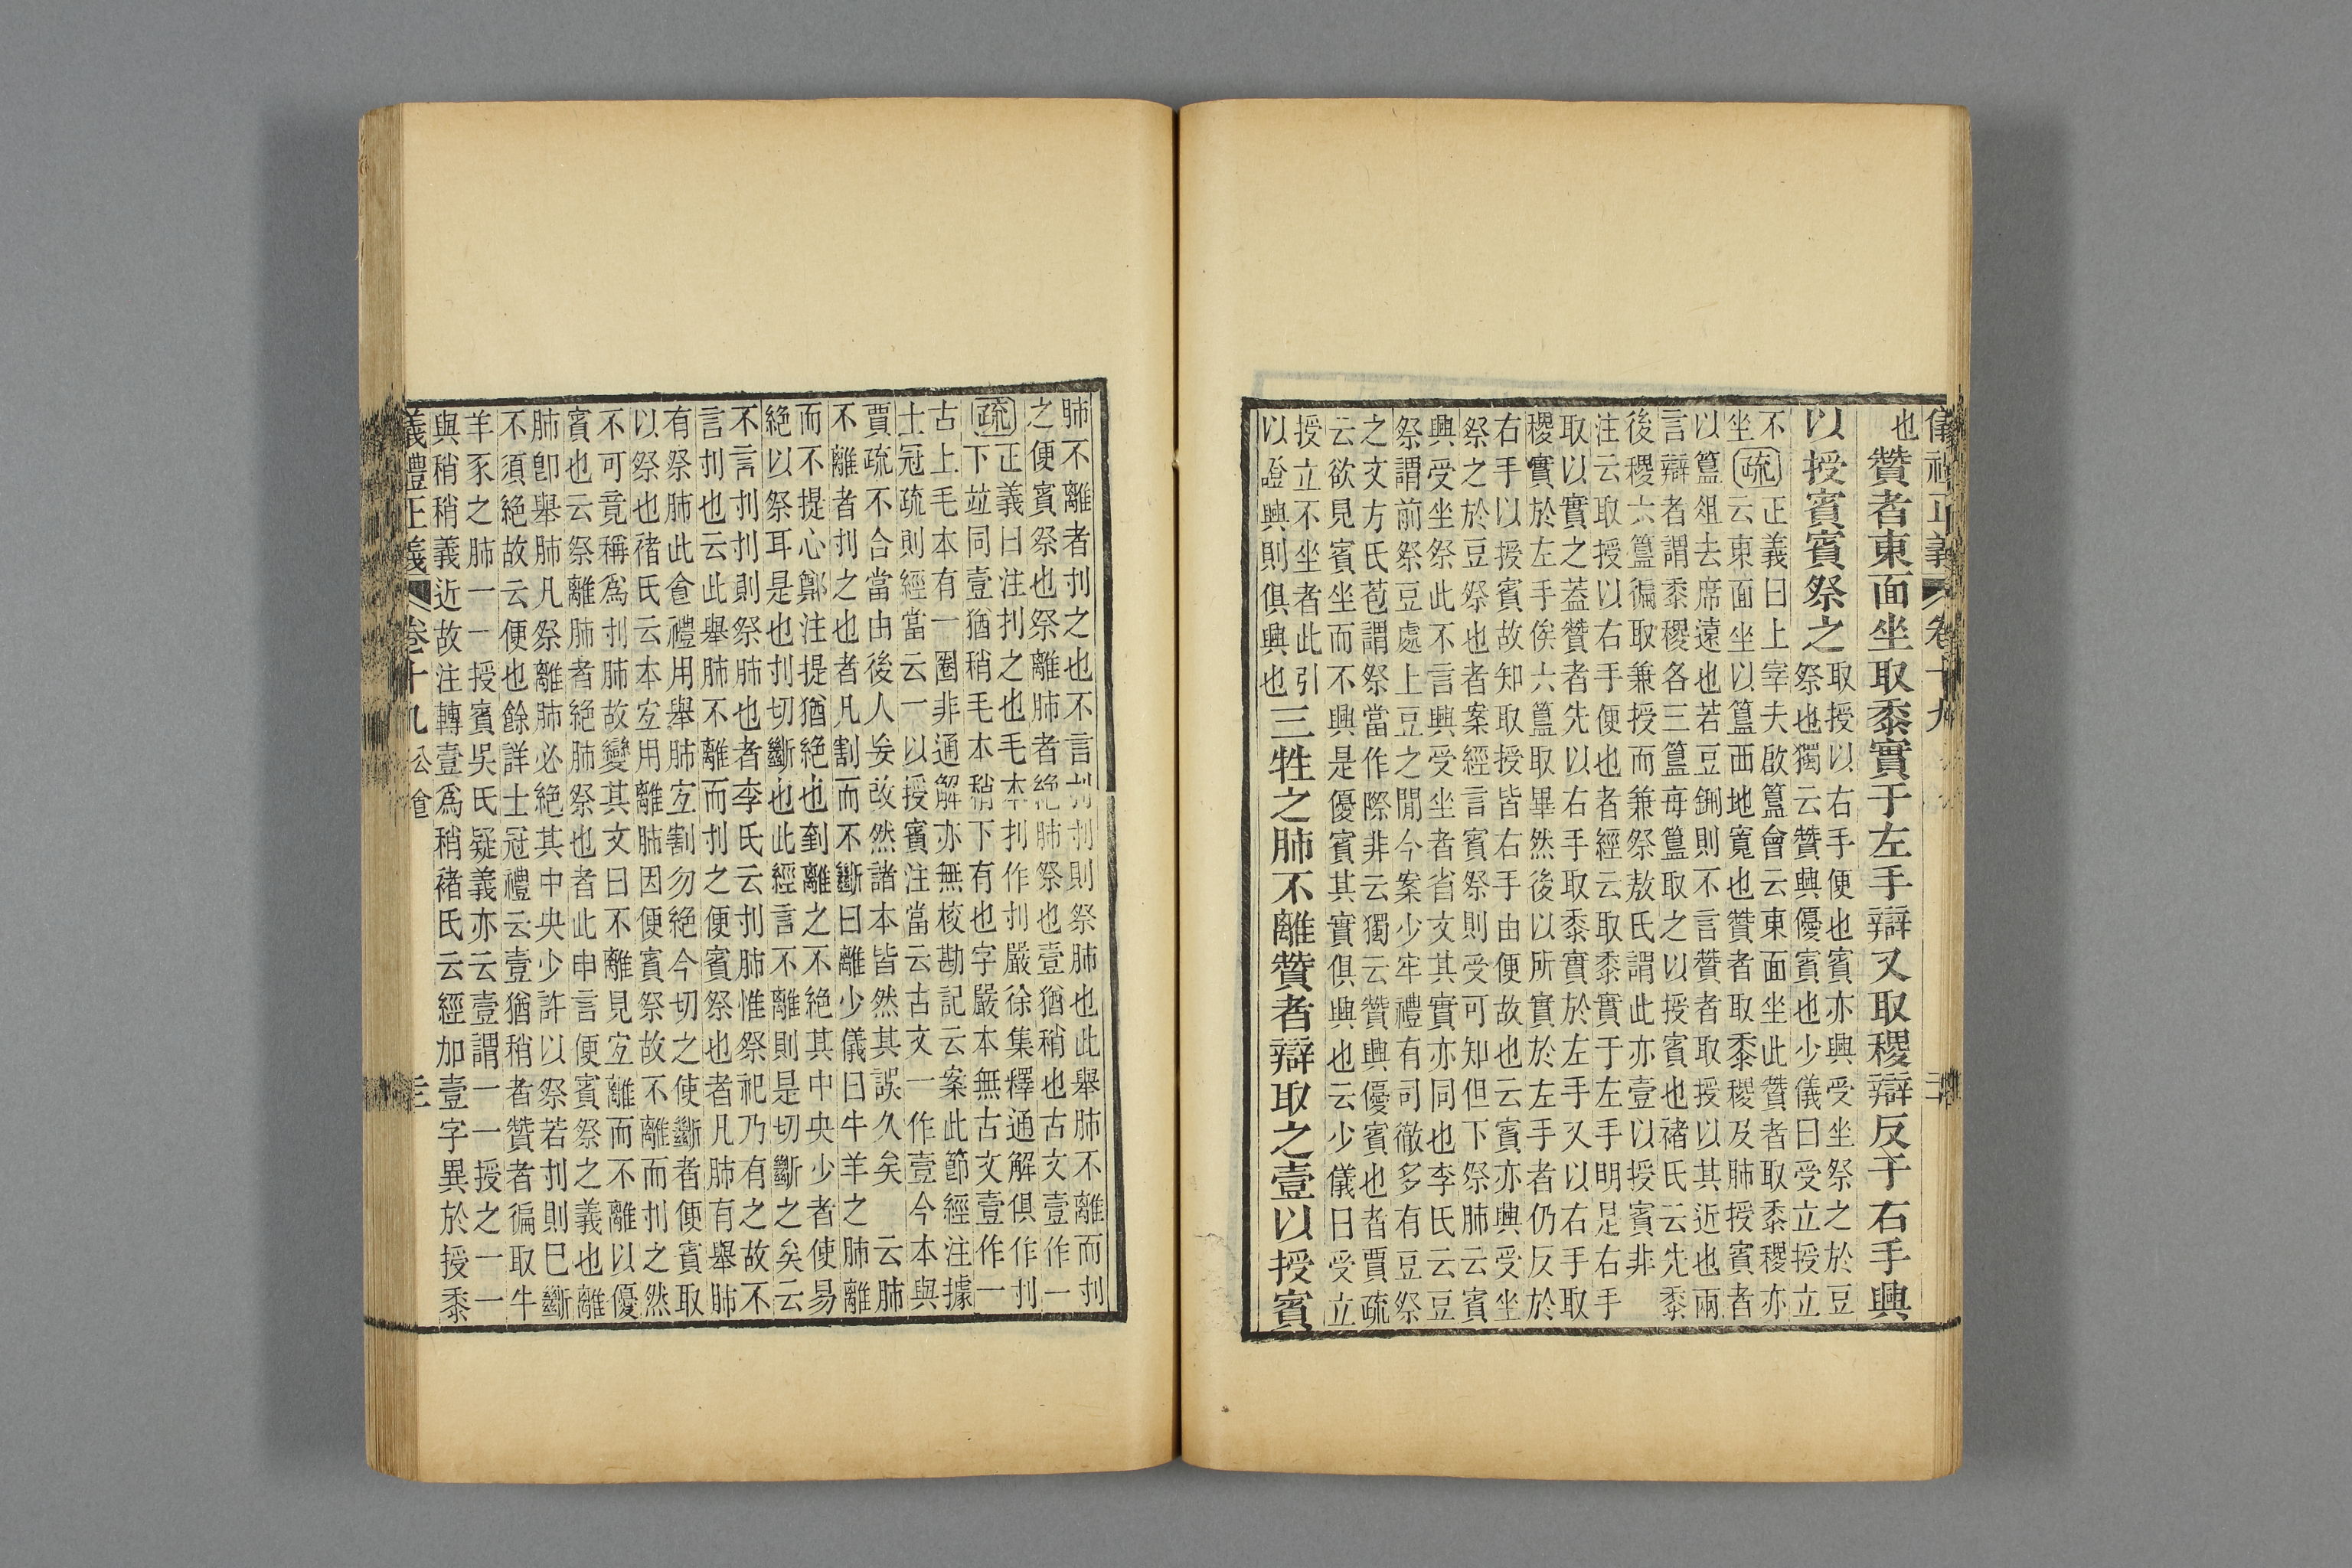 儀禮正義　卷十九
也
贊者東面坐取黍實于左手辯又取稷辯反于右手興
以授賓賓祭之
取授以右手便也賓亦興受坐祭之於豆
祭也獨云贊興優賓也少儀曰受立授立
不
坐
疏
正義曰上宰夫啟簋會云東面坐此贊者取黍稷亦
云東面坐以簋西地寬也贊者取黍稷及肺授賓者
以簋俎去席遠也若豆鉶則不言贊者取授以其近也兩
言辯者謂黍稷各三簋每簋取之以授賓也褚氏云先黍
後稷六簋徧取兼授而兼祭敖氏謂此亦壹以授賓非
注云取授以右手便也者經云取黍實于左手明是右手
取以實之蓋贊者先以右手取黍實於左手又以右手取
稷實於左手俟六簋取畢然後以所實於左手者仍反於
右手以授賓故知取授皆右手由便故也云賓亦興受坐
祭之於豆祭也者案經言賓祭則受可知但下祭肺云賓
興受坐祭此不言興受坐者省文其實亦同也李氏云豆
祭謂前祭豆處上豆之閒今案少牢禮有司徹多有豆祭
之文方氏苞謂祭當作際非云獨云贊興優賓也者賈疏
云欲見賓坐而不興是優賓其實俱興也云少儀曰受立
授立不坐者此引
以證興則俱興也
三牲之肺不離贊者辯取之壹以授賓
肺不離者刌之也不言刌刌則祭肺也此舉肺不離而刌
之便賓祭也祭離肺者絕肺祭也壹猶稍也古文壹作一
疏
正義曰注刌之也毛本刌作刌嚴徐集釋通解俱作刌
下竝同壹猶稍毛本稍下有也字嚴本無古文壹作一
古上毛本有一圈非通解亦無校勘記云案此節經注據
士冠疏則經當云一以授賓注當云古文一作壹今本與
賈疏不合當由後人妄改然諸本皆然其誤久矣　云肺
不離者刌之也者凡割而不斷曰離少儀曰牛羊之肺離
而不提心鄭注提猶絕也剉離之不絕其中央少者使易
絕以祭耳是也刌切斷也此經言不離則是切斷之矣云
不言刌刌則祭肺也者李氏云刌肺惟祭祀乃有之故不
言刌也云此舉肺不離而刌之便賓祭也者凡肺有舉肺
有祭肺此食禮用舉肺宜割勿絕今切之使斷者便賓取
以祭也褚氏云本宜用離肺因便賓祭故不離而刌之然
不可竟稱為刌肺故變其文曰不離見宜離而不離以優
賓也云祭離肺者絕肺祭也者此申言便賓祭之義也離
肺卽舉肺凡祭離肺必絕其中央少許以祭若刌則已斷
不須絕故云便也餘詳士冠禮云壹猶稍者贊者徧取牛
羊豕之肺一一授賓吳氏疑義亦云壹謂一一授之一一
與稍稍義近故注轉壹為稍褚氏云經加壹字異於授黍
義禮正義　卷十九　公食